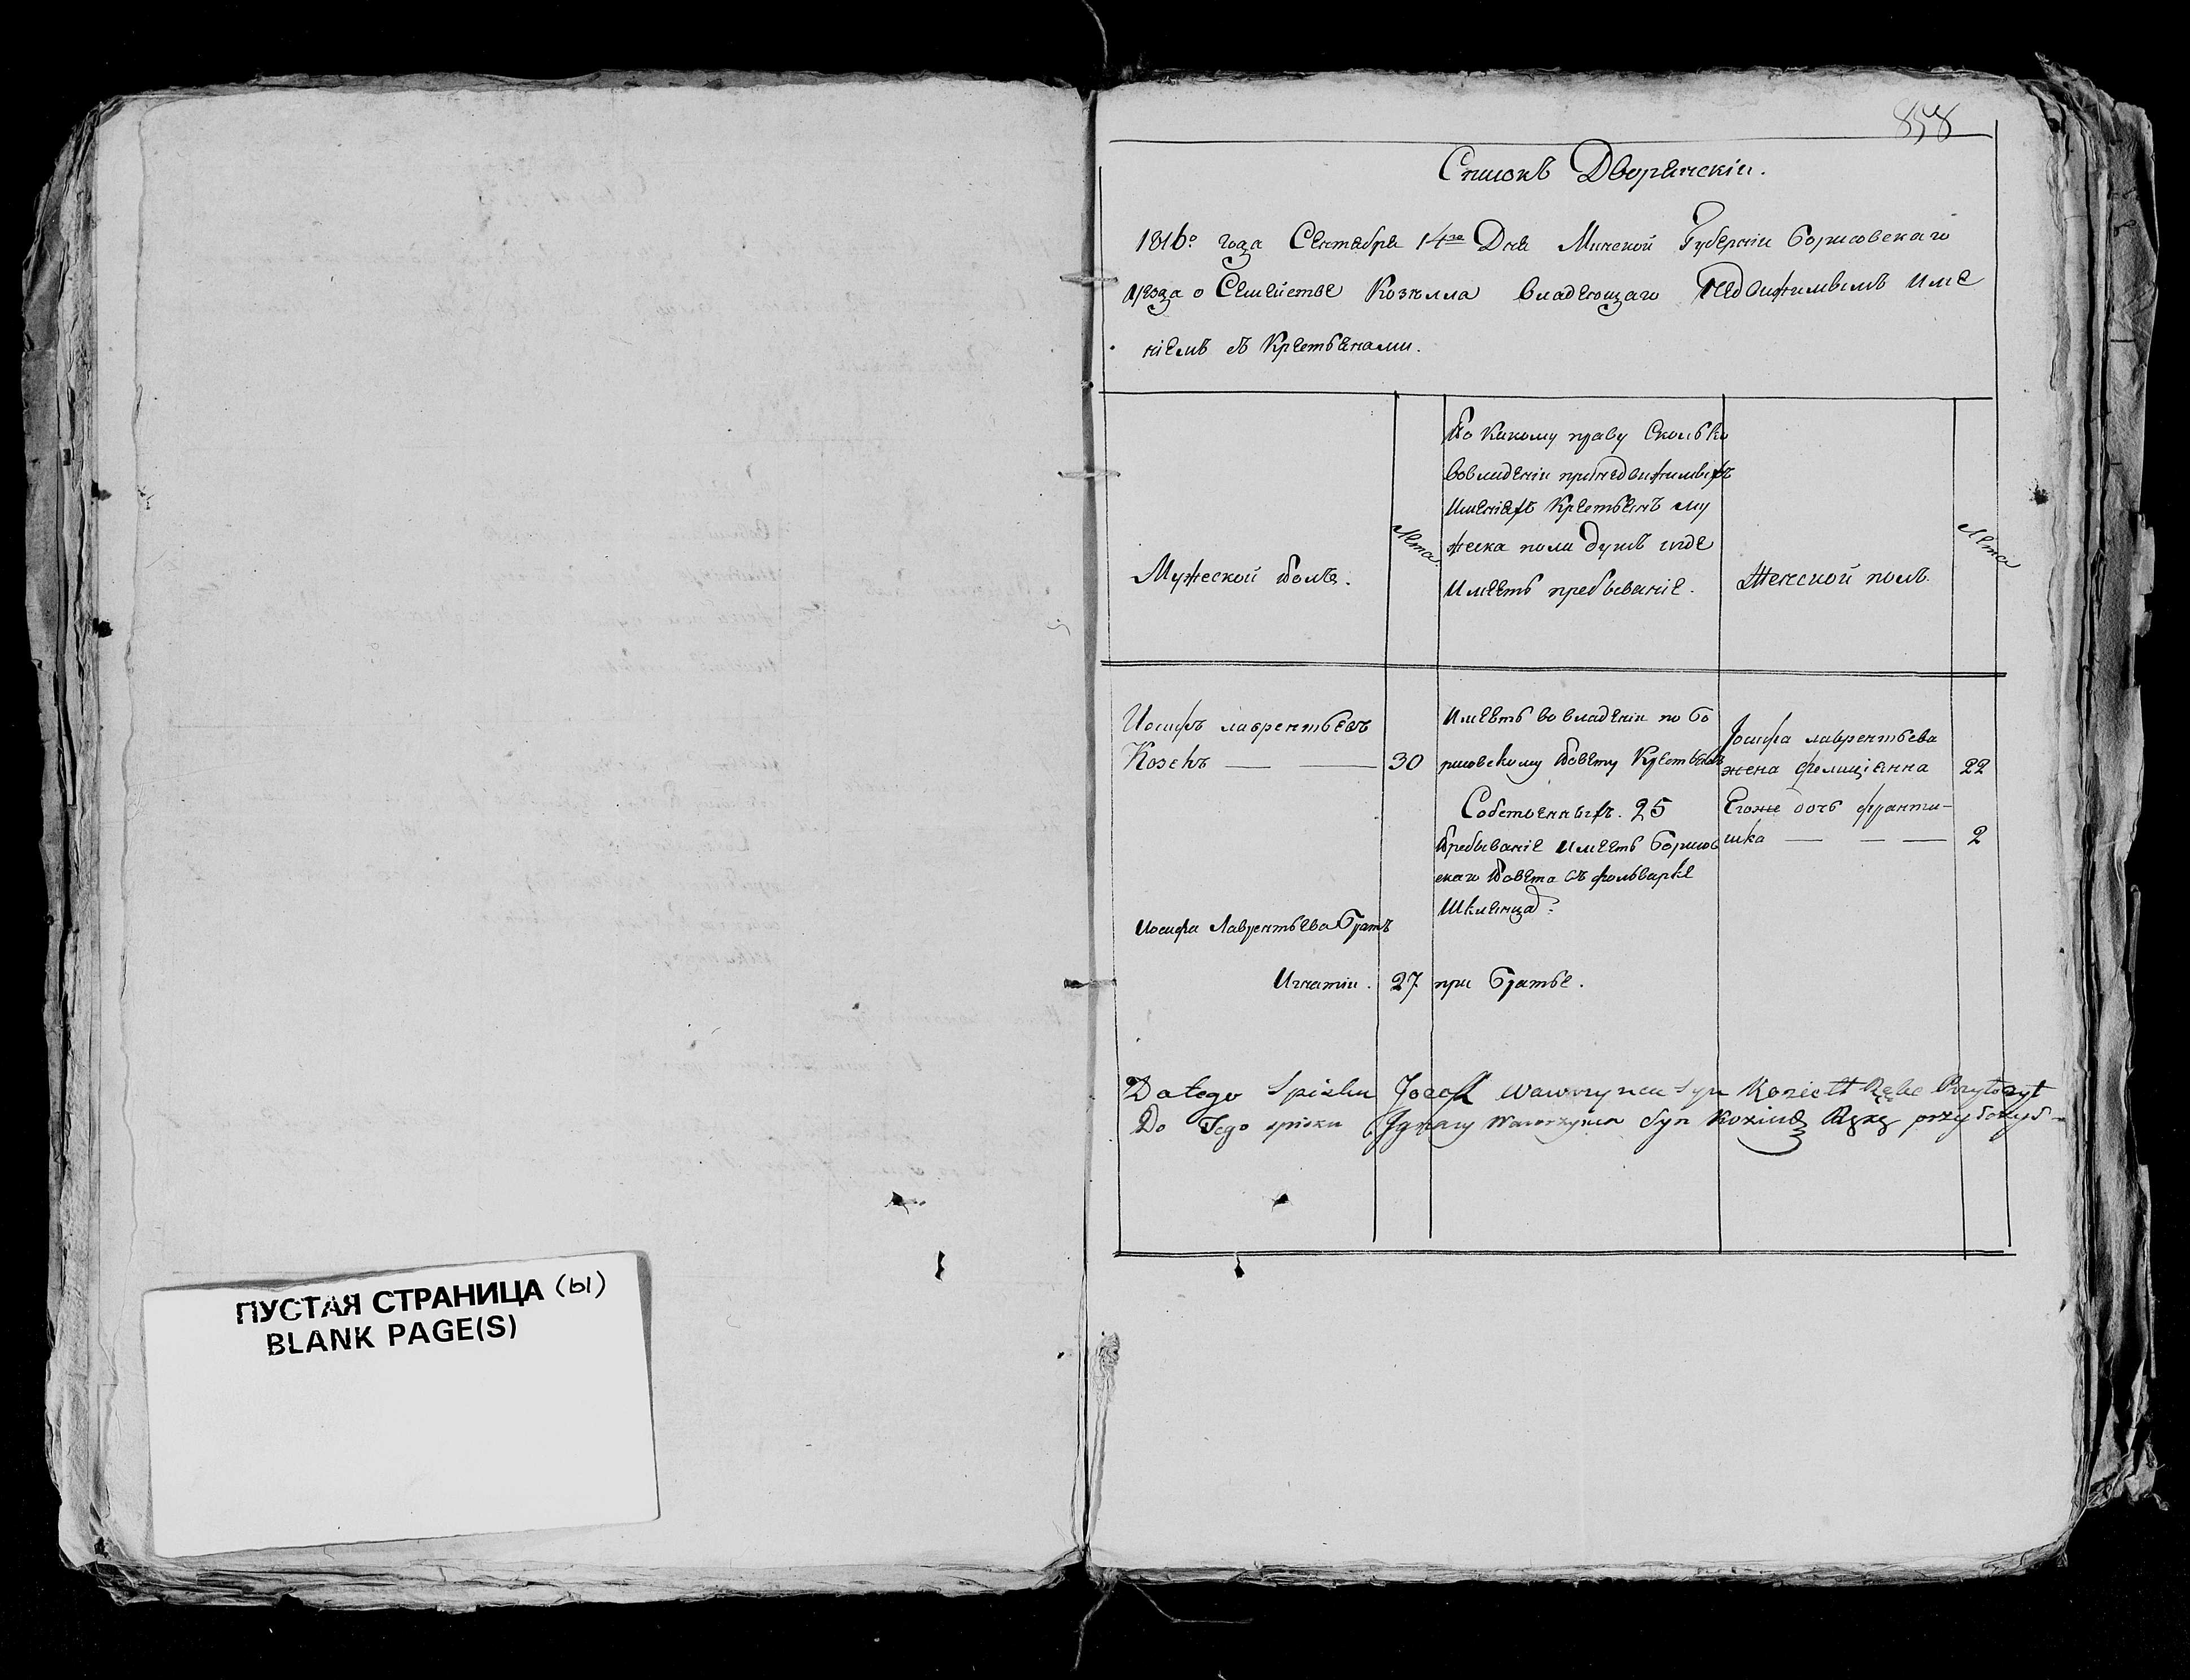 858
Списокъ Дворянскіи.
1816º года Сентября 14го Дня Минской Губерніи Борисовскаго
уезда о Семействе Козелла владеющаго Недвижимымъ име
ніемъ съ Крестьянами.
Мужеской полъ.
Лета
По какому праву Сколько
вовладеніи принедвижимыхъ
именіяхъ Крестьянъ му
жеска пола душъ игде
имеетъ пребываніе.
Женской полъ
Лета
Иосифъ лаврентьевъ
30
Имеетъ во владеніи по Бо
рисовскому Повету Крестьянъ
Собственныхъ. 25
Пребываніе имеетъ Борисов
скаго Повета въ фольварке
Иосифа лаврентьева
жена Фелиціанна 22
Егоже дочь франти-
шка — — — 2
Иосифа Лаврентьева Братъ
Игнатіи. 27 при Братье.
Do tego Spisku Jozef Wawrzynca Syn Koziełł Rękę Przyłożył
Do Tego spisku Ignacy Wawrzynca Syn Rękę przyłożył
ПУСТАЯ СТРАНИЦА (Ы)
BLANK PAGE(S)